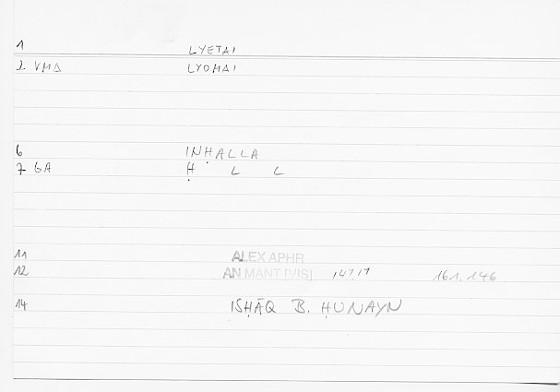 1 LYETAI
2 VMD LYOMAI
6 INḤALLA
7 GA Ḥ L L
11 ALEX APHR
12 AN MANT [VIS] 147.17 161.146
14 ISḤĀQ B. ḤUNAYN